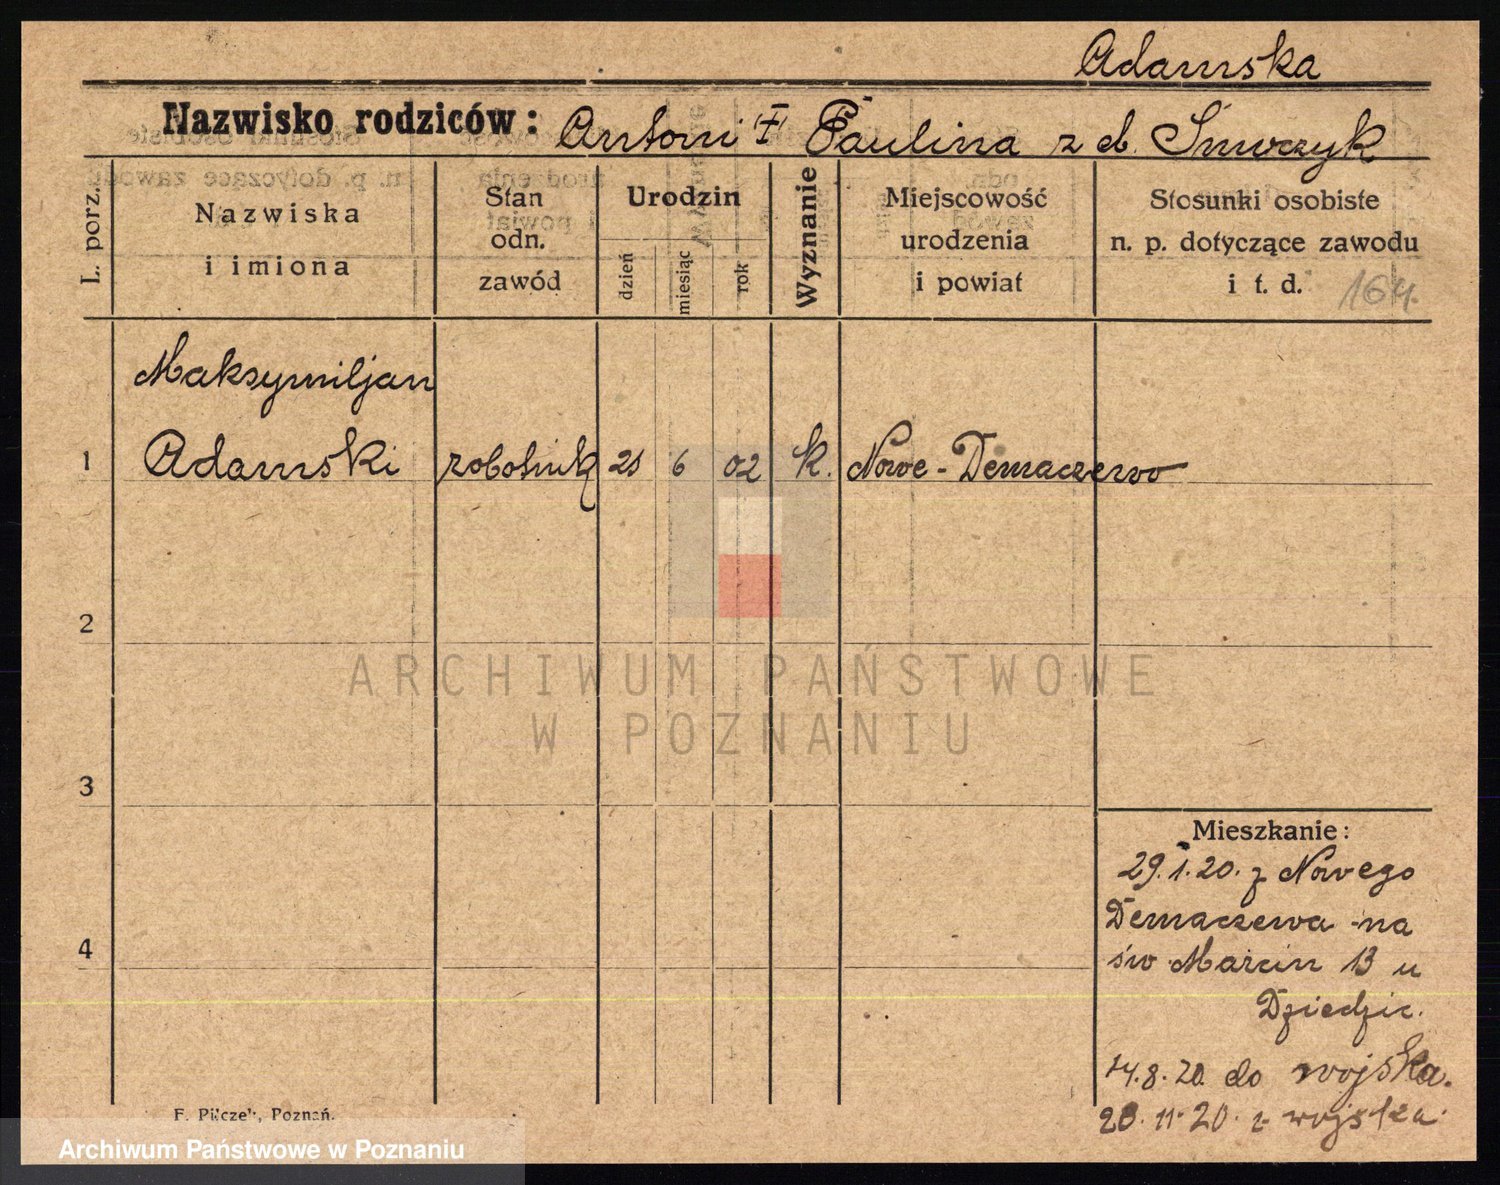 Adamska
Nazwisko rodziców: Antoni I Paulina z d.
L. porz.
Nazwiska
i imiona
Stan
odn.
zawód
Urodzin
dzień
miesiąc
rok
Wyznanie
Miejscowość
urodzenia
i powiat
Stosunki osobiste
n. p. dotyczące zawodu
i t. d.
164.
Maksymiljan
1 Adamski robotnik 21 6 02 k. Nowe-Demaczewo
2
ARCHIWUM PAŃSTWOWE
W POZNANIU
3
Mieszkanie:
29.1.20. z Nowego
Demaczewa na
4
św Marcin 13 u
Dziedzic.
14.8.20. do wojska.
28.11.20. z wojska.
F. Pilczek, Poznań.
Archiwum Państwowe w Poznaniu